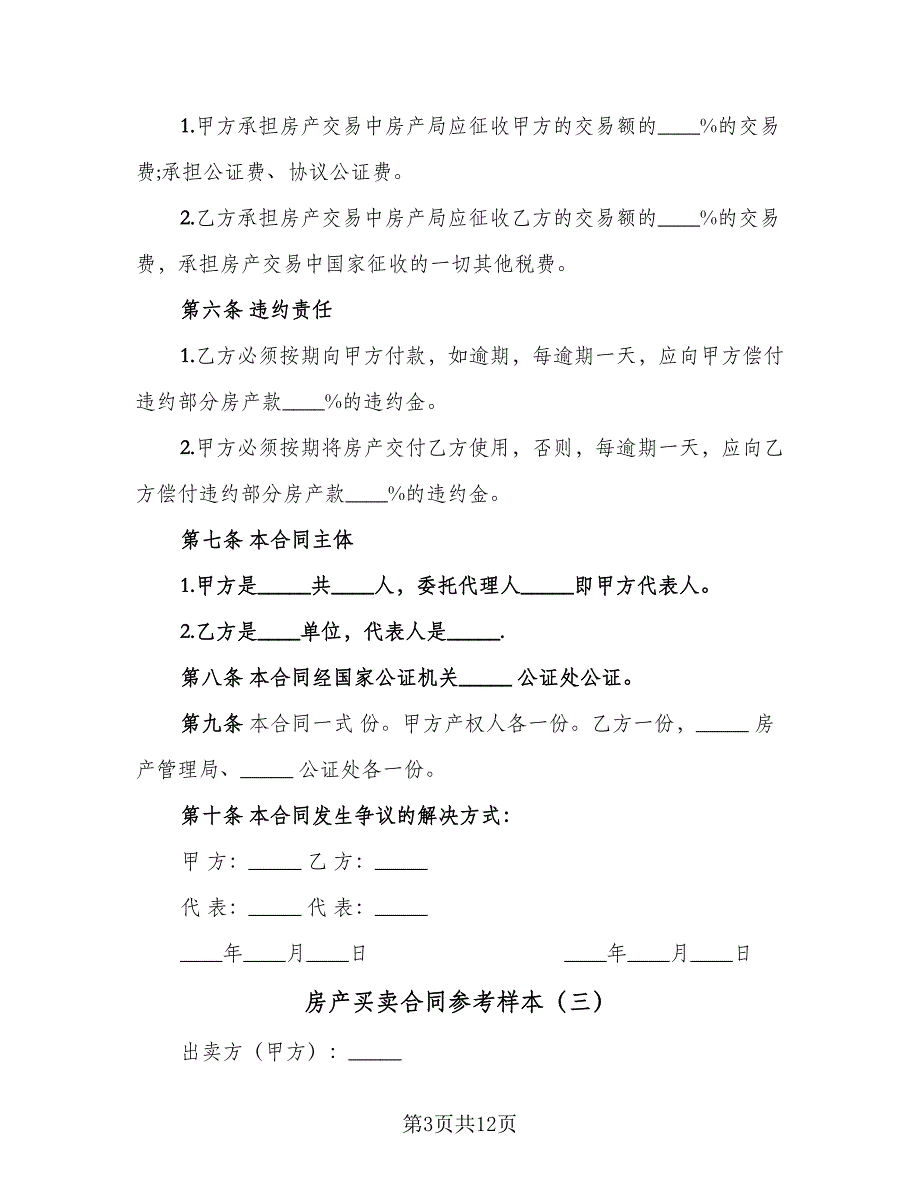 1.甲方承担房产交易中房产局应征收甲方的交易额的____%的交易
费;承担公证费、协议公证费。
2.乙方承担房产交易中房产局应征收乙方的交易额的____%的交易
费，承担房产交易中国家征收的一切其他税费。
第六条 违约责任
1.乙方必须按期向甲方付款，如逾期，每逾期一天，应向甲方偿付
违约部分房产款____%的违约金。
2.甲方必须按期将房产交付乙方使用，否则，每逾期一天，应向乙
方偿付违约部分房产款____%的违约金。
第七条 本合同主体
1.甲方是_____共____人，委托代理人_____即甲方代表人。
2.乙方是____单位，代表人是_____.
第八条 本合同经国家公证机关_____ 公证处公证。
第九条 本合同一式 份。甲方产权人各一份。乙方一份，_____ 房
产管理局、_____ 公证处各一份。
第十条 本合同发生争议的解决方式：
甲 方：_____ 乙 方：_____
代 表：_____ 代 表：_____
____年____月____日 ____年____月____日
房产买卖合同参考样本（三）
出卖方（甲方）：_____
第3页共12页